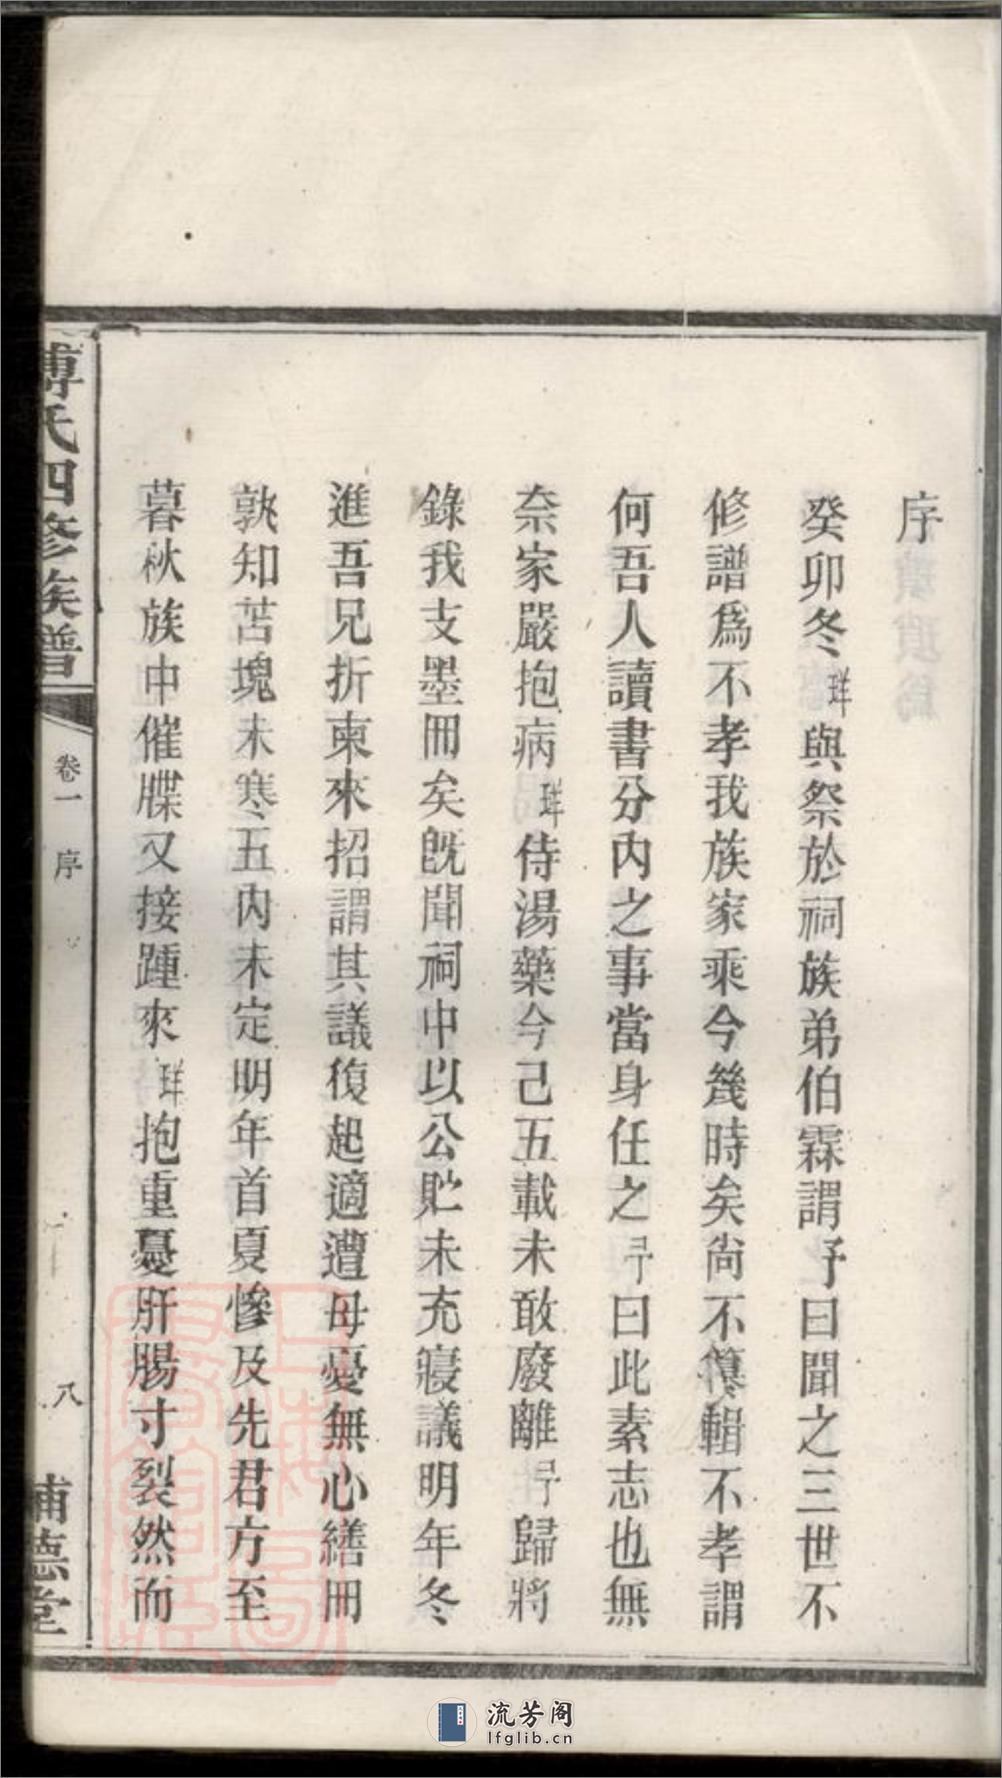 序
癸卯冬珜與祭於祠族弟伯霖謂予曰聞之三世不
修譜爲不孝我族家乘今幾時矣尙不纂輯不孝謂
何吾人讀書分內之事當身任之予曰此素志也無
奈家嚴抱病珜侍湯藥今己五載未敢廢離予歸將
錄我支墨冊矣旣聞祠中以公貯未充寢議明年冬
進吾兄折柬來招謂其議復起適遭母憂無心繕冊
孰知苫塊未寒五內未定明年首夏慘及先君方至
暮秋族中催牒又接踵來珜抱重憂肝腸寸裂然而
傅氏四修族譜
卷一 序
八
流芳阁
lfglib.cn